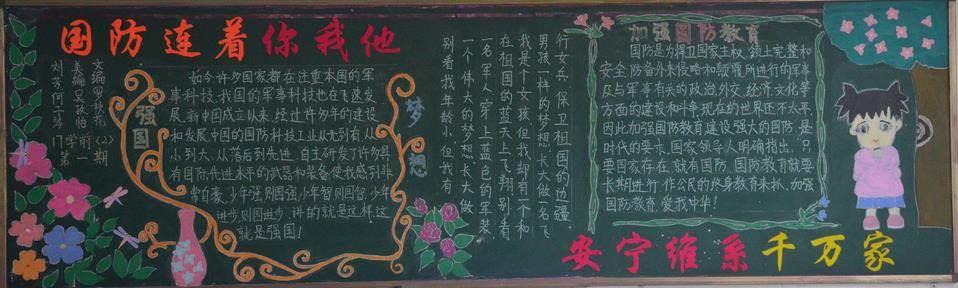 国防连着你我他
文编罗秋花
刘芳何一婷
强国
如今许多国家都在注重本国的军
事科技,我国的军事科技也在飞速发
展.新中国成立以来,经过许多年的建设
和发展,中国的国防科技工业从无到有,从
小到大,从落后到先进,自主研发了许多具
有国际先进水平的武器和装备使我感到非
常自豪,少年强则国强,少年智则国智,少年
进步则国进步.讲的就是这样,这
就是强国!
梦想
别看我年龄小,但我有
一个伟大的梦想,长大做
一名军人,穿上蓝色的军装,
在祖国的蓝天上飞翔,别看
我是个女孩,但我却有一个和
男孩一样的梦想,长大做一名飞
行女兵,保卫祖国的边疆
加强国防教育
国防是为捍卫国家主权、领土完整和
安全,防备外来侵略和颠覆,所进行的军事
及与军事有关的政治、外交、经济、文化等
方面的建设和斗争,现在的世界还不太平,
因此加强国防教育,建设强大的国防,是
时代的要求,国家领导人明确指出,"只
要国家存在,就有国防,国防教育就要
长期进行,作公民的终身教育来抓,加强
国防教育,爱我中华!
安宁维系千万家